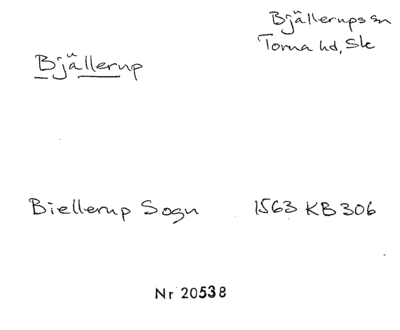 Bjällerupssn
Torna hd, Sk
Bjällerup
Biellerup Sogn 1563 KB 306
Nr 20538